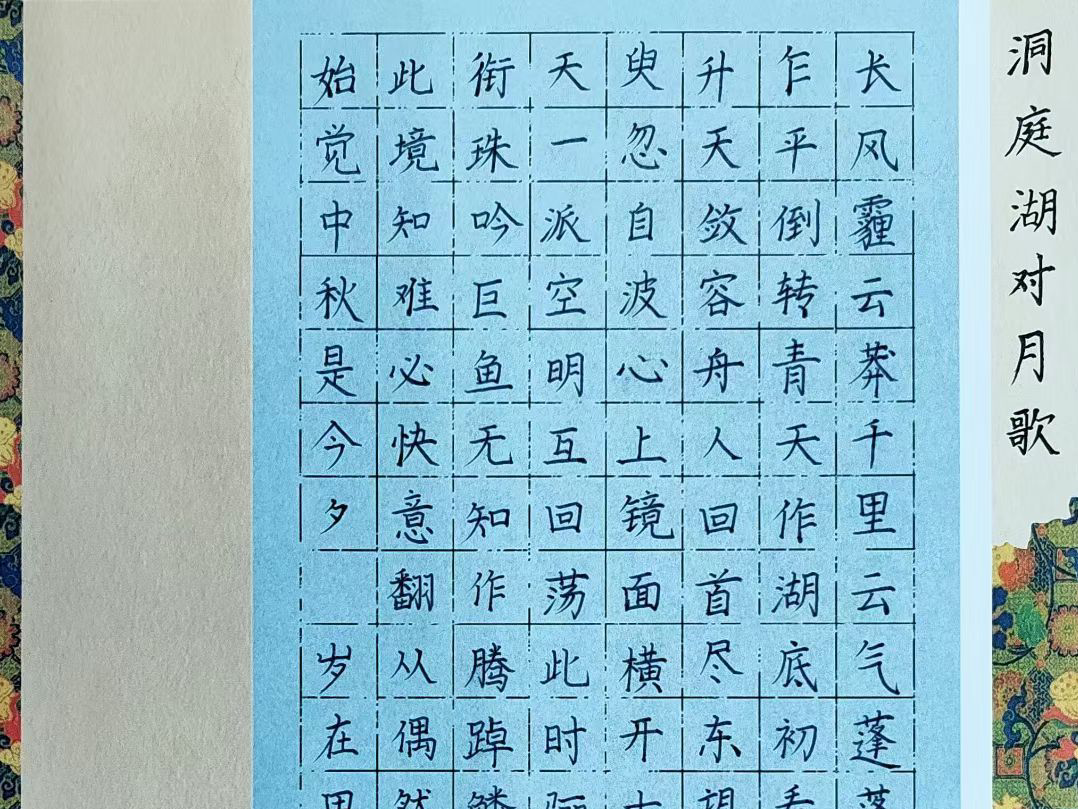 洞庭湖对月歌
长风霾云莽千里云气蓬蓬
乍平倒转青天作湖底初看
升天敛容舟人回首尽东望
臾忽自波心上镜面横开十
天一派空明互回荡此时骊
衔珠吟巨鱼无知作腾踔鳞
此境知难必快意翻从偶然
始觉中秋是今夕 岁在甲